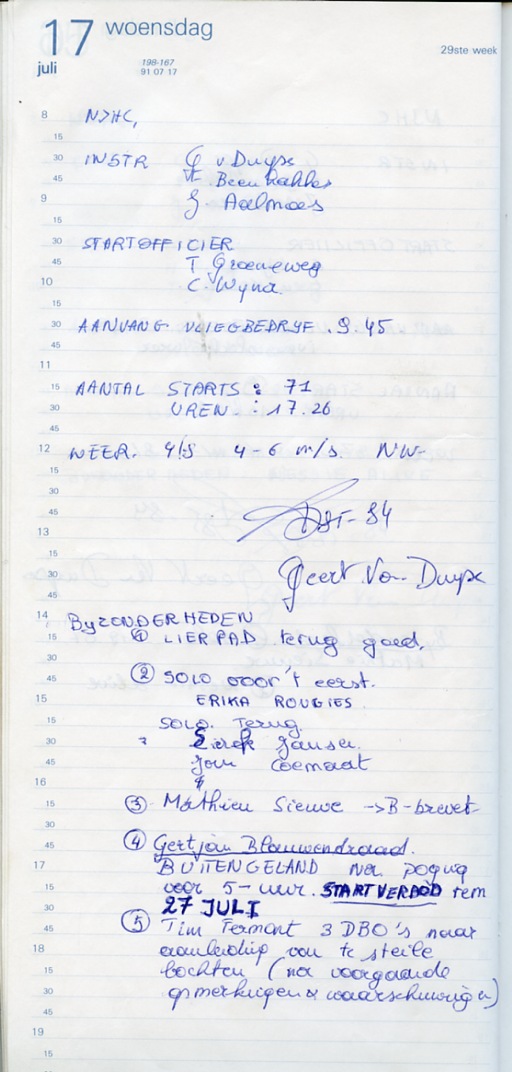 17 woensdag
juli
198-167
91 07 17
29ste week
8 NJHC,
15
30 INSTR G v Duyse
45 Beenhakker
9 J. Aalmoes
15
30 STARTOFFICIER
45 T Groeneweg
10 C. Wyna.
15
30 AANVANG VLIEGBEDRYF . 9.45
45
11
15 AANTAL STARTS : 71
30 UREN : 17.26
45
12 WEER. 4/8 4-6 m/s NW-
15
30
45
13
15 Geert Van Duyse
30
45
14 ByZONDERHEDEN
15 ① LIERPAD terug goed.
30
45 ② SOLO voor 't eerst.
15 ERIKA ROUGIES
15 SOLO. Terug
30 Jansen.
45 Coemaat
16
15 ③ Mathieu Sieuwe -> B-brevet
30
45 ④ Gertjan Blauwendraad.
17 BUITENGELAND na poging
15 voor 5-uur. STARTVERBOD tem
30 27 JULI
45 ⑤ Tim Fermont 3 DBO's naar
18 aanleiding van te steile
15 bochten (na voorgaande
30 opmerkingen & waarschuwingen)
45
19
15